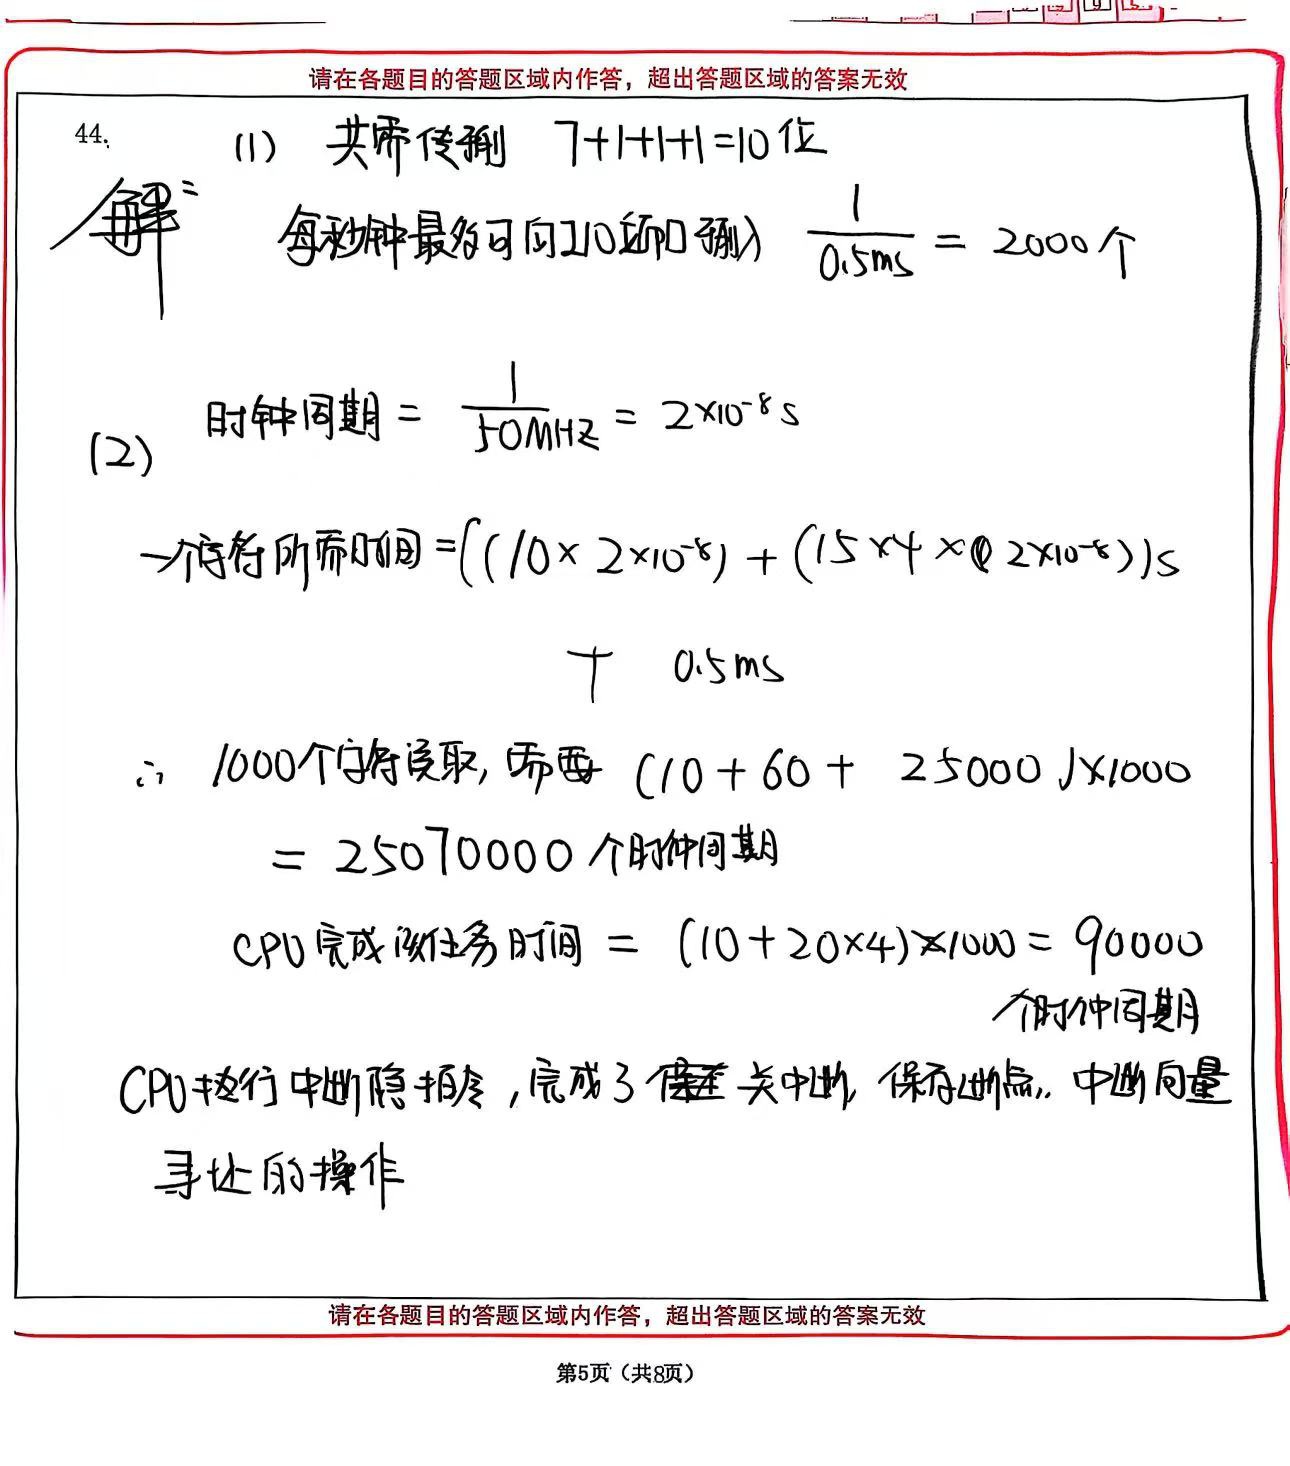 请在各题目的答题区域内作答，超出答题区域的答案无效
44.
解：
(1) 共需传输 7+1+1+1=10位
每秒钟最多可向I/O端口输入 1/0.5ms = 2000个
(2) 时钟周期 = 1/50MHZ = 2×10⁻⁸s
一个字符所需时间=((10×2×10⁻⁸)+(15×4×2×10⁻⁸))s
+ 0.5ms
∴ 1000个字符读取，需要 (10+60+25000)×1000
= 25070000个时钟周期
CPU完成该任务时间 = (10+20×4)×1000=90000
个时钟周期
CPU执行中断隐指令，完成了关中断，保存断点，中断向量
寻址的操作
请在各题目的答题区域内作答，超出答题区域的答案无效
第5页（共8页）